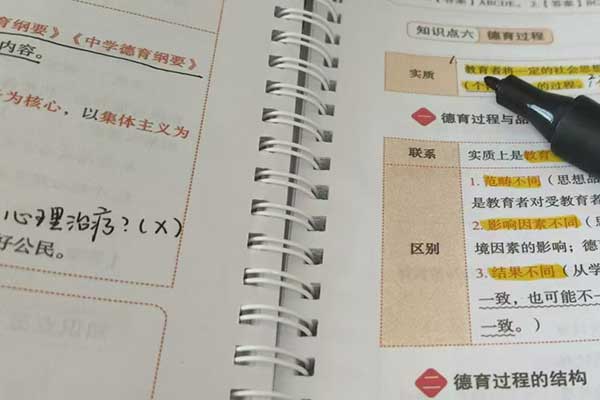 育纲要》《中学德育纲要》
内容。
为核心，以集体主义为
心理治疗？(×)
好公民。
知识点六 德育过程
实质
教育者将一定的社会思想
的过程。
一 德育过程与品
联系
实质上是教育
区别
1. 范畴不同（思想品
是教育者对受教育者
2. 影响因素不同（
境因素的影响；德
3. 结果不同（从学
一致，也可能不一
一致。）
二 德育过程的结构